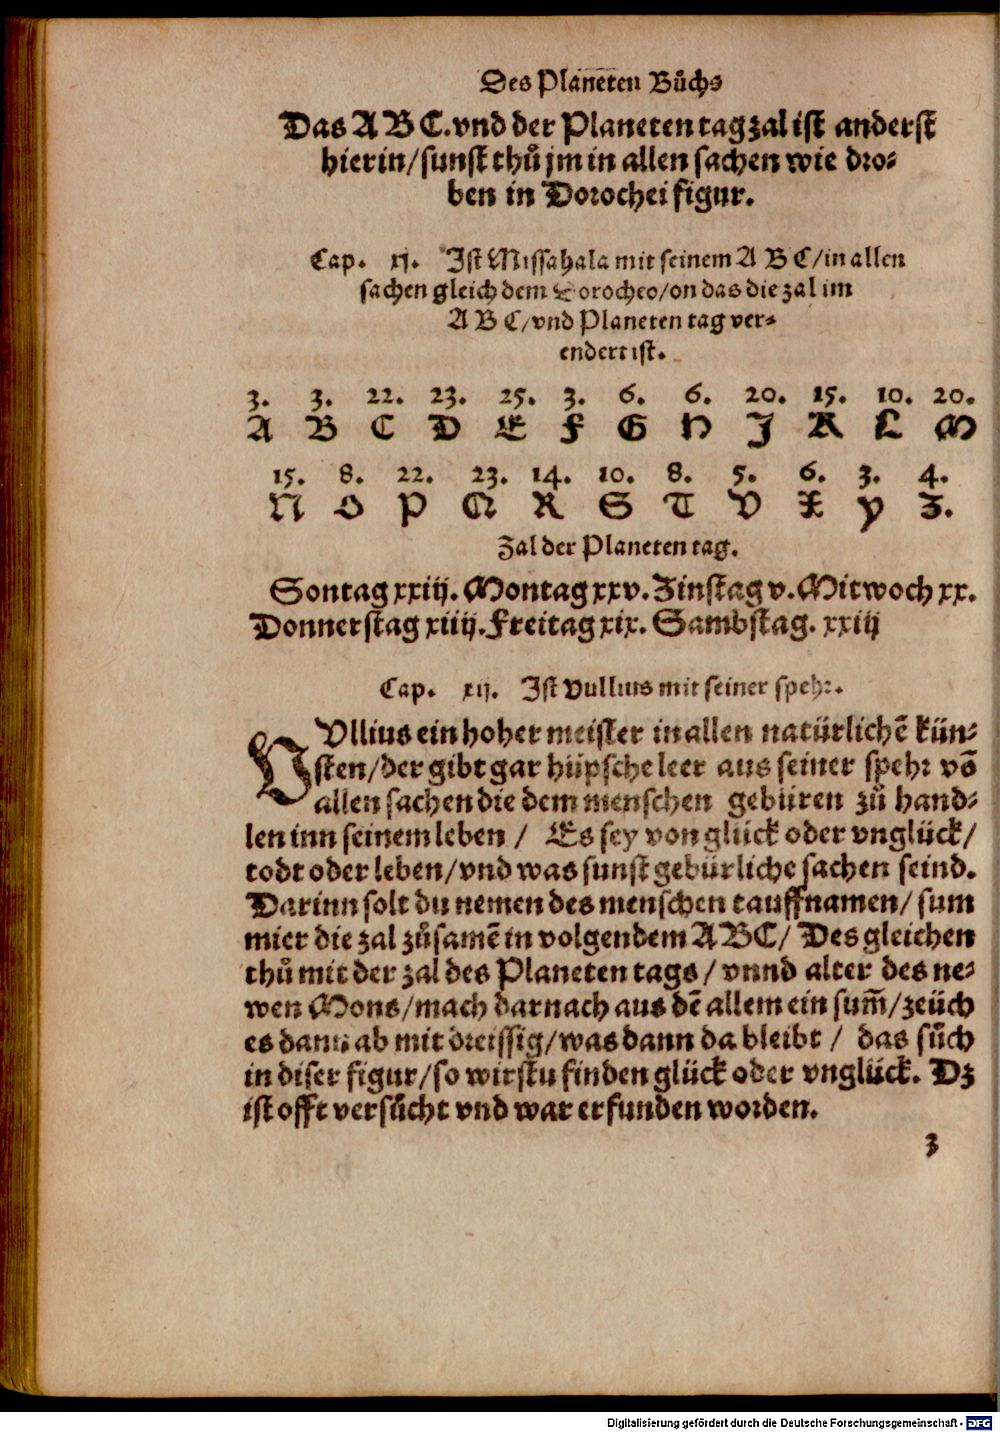 Des Planeten Bůchs
Das A B C. vnd der Planeten tag zal ist anderst
hierin/sunst thů jm in allen sachen wie dro⸗
ben in Dorochei figur.
Cap. xj. Ist Missahala mit seinem A B C/in allen
sachen gleich dem Dorocheo/on das die zal im
A B C/vnd Planeten tag ver⸗
endert ist.
3. 3. 22. 23. 25. 3. 6. 6. 20. 15. 10. 20.
A B C D E F G H J K L M
15. 8. 22. 23. 14. 10. 8. 5. 6. 3. 4.
N O P Q R S T V X Y Z.
Zal der Planeten tag.
Sontag xxiij. Montag xxv. Zinstag v. Mitwoch xx.
Donnerstag xiiij. Freitag xix. Sambstag. xxiij
Cap. xij. Ist Vullius mit seiner spehr.
VUllius ein hoher meister in allen natürlichē kün⸗
sten/der gibt gar hüpsche leer aus seiner spehr vō
allen sachen die dem menschen gebüren zů hand⸗
len inn seinem leben / Es sey von glück oder vnglück/
todt oder leben/vnd was sunst gebürliche sachen seind.
Darinn solt du nemen des menschen tauffnamen/ sum
mier die zal zůsamē in volgendem A B C/ Des gleichen
thů mit der zal des Planeten tags / vnnd alter des ne⸗
wen Mons/mach darnach aus dē allem ein sum̄/zeüch
es dann ab mit dreissig/was dann da bleibt / das sůch
in diser figur/so wirstu finden glück oder vnglück. Dz
ist offt versůcht vnd war erfunden worden.
3
Digitalisierung gefördert durch die Deutsche Forschungsgemeinschaft - DFG